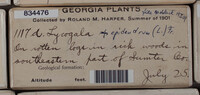 834476
GEORGIA PLANTS
Collected by ROLAND M. HARPER, Summer of 1901.
1117d. Lycogala epidendrum (L) Fr
On rotten logs in rich woods in
northeastern part of Sumter Co.
Geological formation:
Altitude feet. July 25